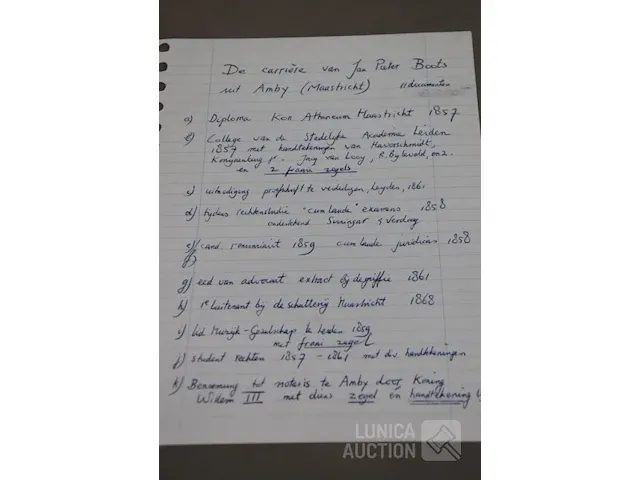 De carrière van Jan Pieter Boots
uit Amby (Maastricht) 11 documenten
a) Diploma Kon Atheneum Maastricht 1857
b) College van de Stedelijke Academie Leiden
1857 met handtekeningen van Haverschmidt,
Jr. van Looy, R. Bijleveld, enz.
en 2 fraaie zegels
c) uitnodiging proefschrift te verdedigen, Leyden, 1861
d) tijdens rechtenstudie "cum laude" examens 1858
ondertekend
e) cand 1859 cum laude juridicus 1858
f)
g) eed van advocaat extract bij de griffie 1861
h) 1e luitenant bij de schutterij Maastricht 1868
i) lid Muzijk-Gezelschap te Leiden 1859
met fraai zegel
j) student rechten 1857 - 1861 met div handtekeningen
k) Benoeming tot notaris te Amby door Koning
Willem III met diens zegel én handtekening
LUNICA
AUCTION